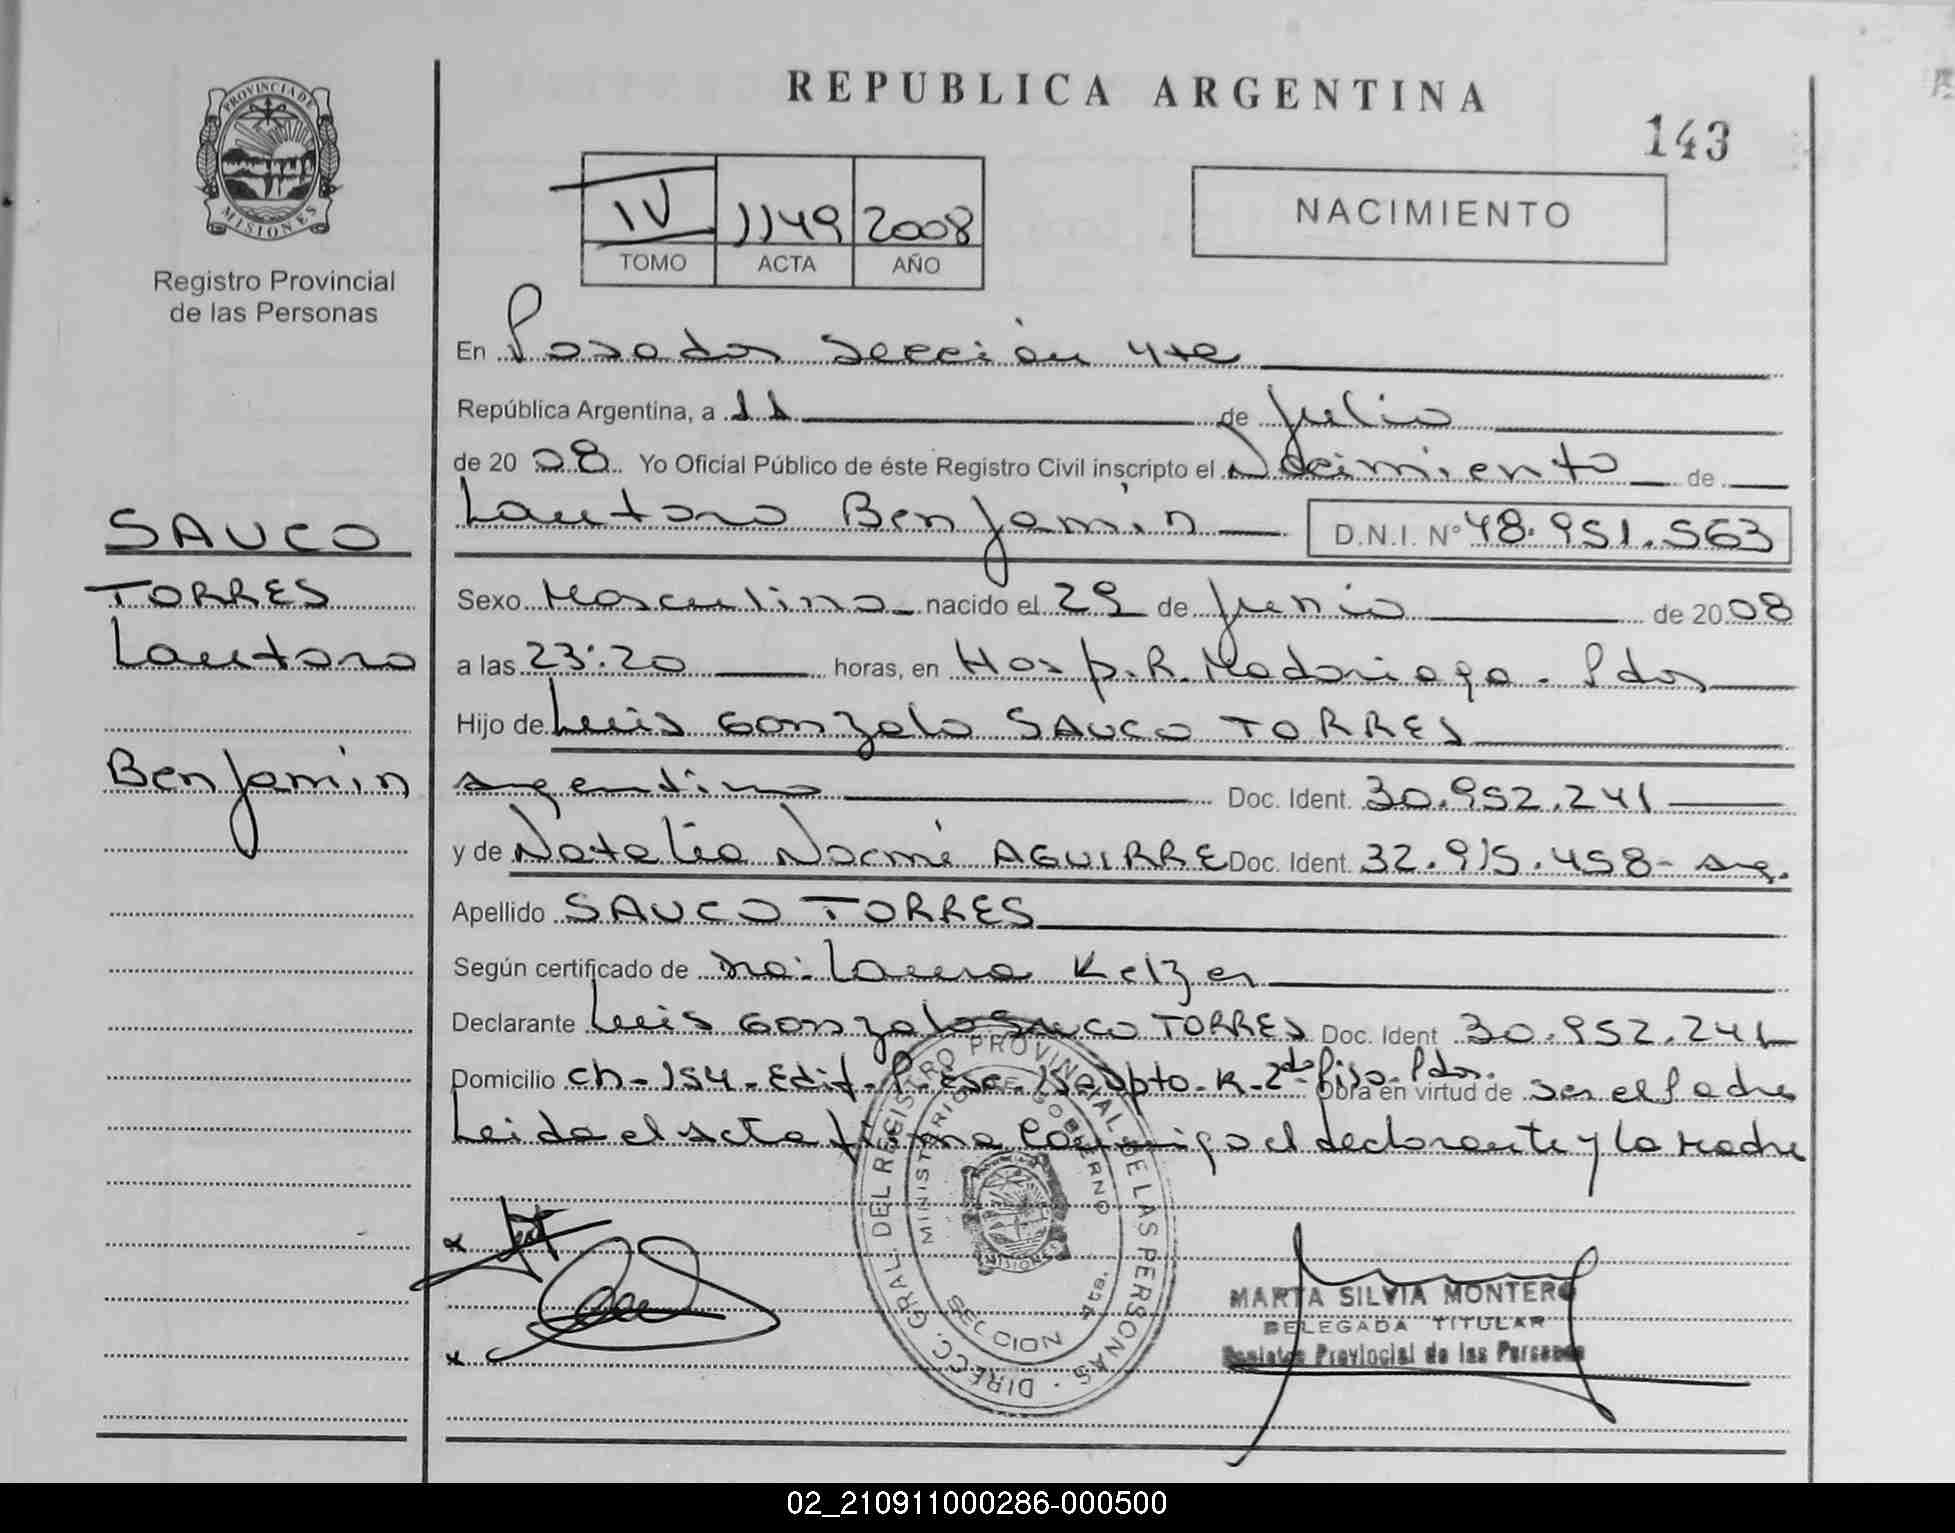 REPUBLICA ARGENTINA
143
PROVINCIA DE
MISIONES
Registro Provincial
de las Personas
IV 1149 2008
TOMO ACTA AÑO
NACIMIENTO
En Posadas Sección 4ta
República Argentina, a 11 de Julio
de 2008 Yo Oficial Público de éste Registro Civil inscripto el Nacimiento de
Lautaro Benjamín D.N.I. Nº 48.951.563
SAUCO
TORRES
Lautaro
Benjamín
Sexo Masculino nacido el 29 de Junio de 2008
a las 23:20 horas, en Hosp. R. Madariaga - Pdas
Hijo de Luis Gonzalo SAUCO TORRES
argentino Doc. Ident. 30.952.241
y de Natalia Noemí AGUIRRE Doc. Ident. 32.915.458 - arg.
Apellido SAUCO TORRES
Según certificado de Laura Kelzer
Declarante Luis Gonzalo SAUCO TORRES Doc. Ident 30.952.241
Domicilio Ch-154-Edif. P. Esc. Dpto. K-2do Piso-Pdas. Obra en virtud de ser el Padre
Leida el acta firma conmigo el declarante y la madre
DIRECC. GRAL. DEL REGISTRO PROVINCIAL DE LAS PERSONAS
MINISTERIO DE GOBIERNO
MISIONES
SECCION 4ta.
MARTA SILVIA MONTERO
DELEGADA TITULAR
Registro Provincial de las Personas
02_210911000286-000500